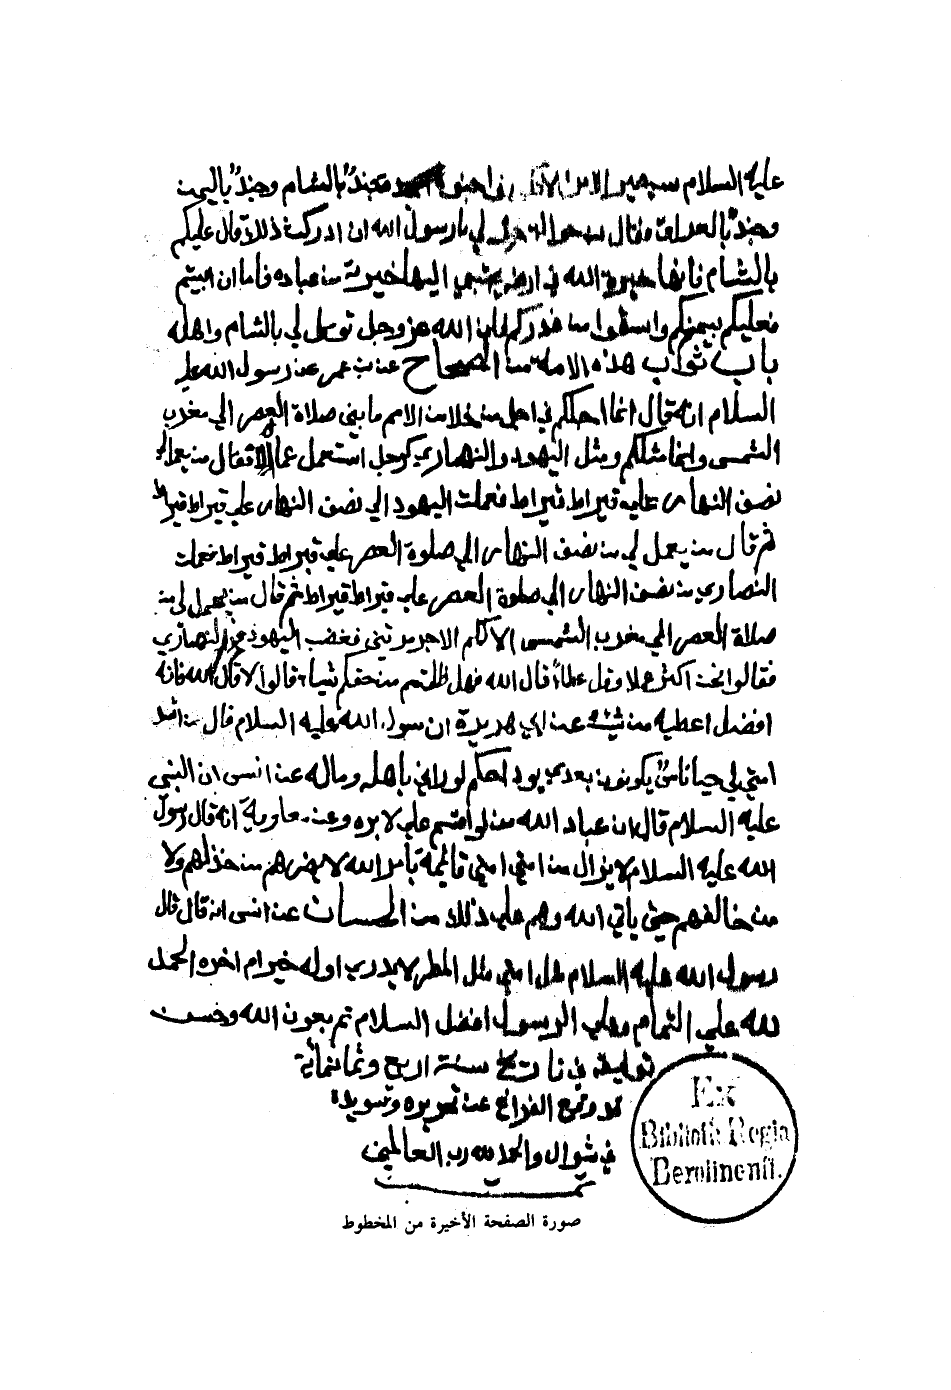 عليه السلام سيصير الامر الى ان جنودا مجندة جند بالشام وجند باليمن
وجند بالعراق فقال ابن حوالة خر لي يا رسول الله ان ادركت ذلك قال عليكم
بالشام فانها خيرة الله في ارضه يجتبي اليها خيرته من عباده فاما ان ابيتم
فعليكم بيمنكم واسقوا من غدركم فان الله عز وجل توكل لي بالشام واهله
باب ثواب هذه الامة من الصحاح عن بن عمر عن رسول الله عليه
السلام انه قال انما اجلكم في اجل من خلا من الامم ما بين صلاة العصر الي مغرب
الشمس وانما مثلكم ومثل اليهود والنصاري كرجل استعمل عمالا فقال من يعمل الي
نصف النهار علي قيراط قيراط فعملت اليهود الي نصف النهار علي قيراط قيراط
ثم قال من يعمل لي من نصف النهار الي صلوة العصر علي قيراط قيراط فعملت
النصاري من نصف النهار الي صلوة العصر علي قيراط قيراط ثم قال من يعمل لي من
صلاة العصر الي مغرب الشمس الا لكم الاجر مرتين فغضب اليهود والنصاري
فقالوا نحن اكثر عملا واقل عطاء قال الله فهل ظلمتم من حقكم شياء قالوا لا قال الله فانه
افضل اعطيه من شئت عن ابي هريرة ان رسول الله عليه السلام قال من اشد
امتي لي حبا ناس يكونون بعدي يود احدكم لو راني باهله وماله عن انس ان النبي
عليه السلام قال ان من عباد الله من لو اقسم علي لابره وعن معاوية انه قال رسول
الله عليه السلام لا يزال من امتي امتي قائمة بامر الله لا يضرهم من خذلهم ولا
من خالفهم حتي ياتي الله وهم علي ذلك من الحسان عن انس انه قال قال
رسول الله عليه السلام مثل امتي مثل المطر لا يدري اوله خير ام اخره الحمد
لله علي التمام وعلي الرسول افضل السلام تم بعون الله وحسن
توفيقه في تاريخ سنة اربع وثمانمائة
قد وقع الفراغ عن تحريره وتسويده
في شوال والحمد لله رب العالمين
تمت
صورة الصفحة الأخيرة من المخطوط
Ex
Biblioth. Regia
Berolinensi.